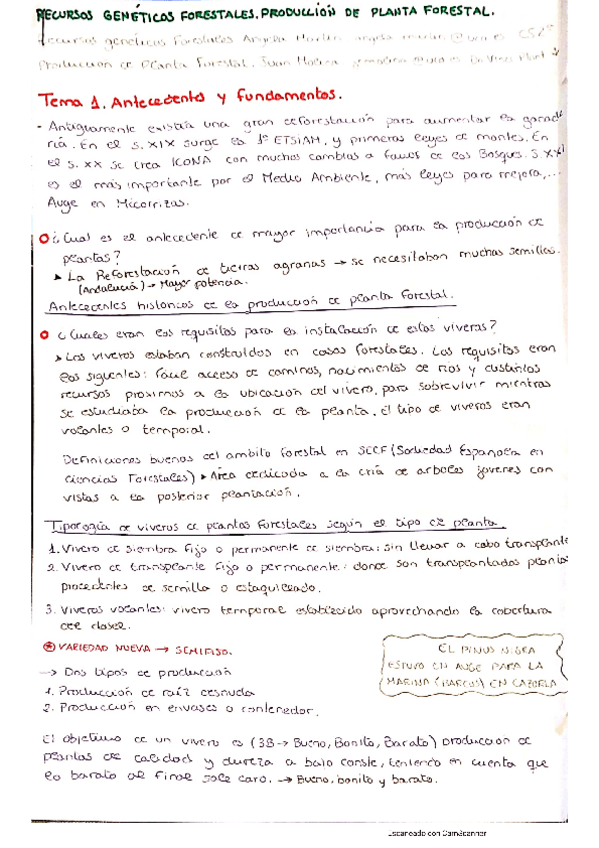 RECURSOS GENÉTICOS FORESTALES. PRODUCCIÓN DE PLANTA FORESTAL.
Recursos genéticos Forestales Angela
Producción de Planta Forestal. Juan
Tema 1. Antecedentes y fundamentos.
- Antiguamente existía una gran deforestación para aumentar la ganade
ría. En el S. XIX surge la 1ª ETSIAM, y primeras leyes de montes. En
el S. XX se crea ICONA con muchos cambios a favor de los Bosques. S XXI
es el más importante por el Medio Ambiente, más leyes para mejora,...
Auge en Micorrizas.
¿Cual es el antecedente de mayor importancia para la producción de
plantas?
➤ La Reforestación de tierras agrarias → se necesitaban muchas semillas.
(Andalucía) → Mayor potencia.
Antecedentes históricos de la producción de planta forestal.
¿Cuales eran los requisitos para la instalación de estos viveros?
➤ Los viveros estaban construidos en casas forestales. Los requisitos eran
los siguentes: facil acceso de caminos, nacimientos de ríos y
recursos proximos a la ubicación del vivero, para sobrevivir mientras
se estudiaba la producción de la planta. El tipo de viveros eran
volantes o temporal.
Definiciones buenas del ambito forestal en SECF (Sociedad Española en
ciencias Forestales) ➤ Área dedicada a la cría de arboles jovenes con
vistas a la posterior plantación.
Tipología de viveros de plantas forestales según el tipo de planta.
1. Vivero de siembra fijo o permanente de siembra: sin llevar a cabo transplante
2. Vivero de transplante fijo o permanente: donde son transplantados plantas
procedentes de semilla o estaquillado.
3. Viveros volantes: vivero temporal establecido aprovechando la cobertura
del dosel.
VARIEDAD NUEVA → SEMIFIJO.
EL PINUS NIGRA
ESTUVO EN AUGE PARA LA
MARINA (BARCOS) EN CAZORLA
→ Dos tipos de producción
1. Producción de raíz desnuda
2. Producción en envases o contenedor.
El objetivo de un vivero es (3B → Bueno, Bonito, Barato) producción de
plantas de calidad y dureza a bajo coste, teniendo en cuenta que
lo barato al final sale caro. → Bueno, bonito y barato.
Escaneado con CamScanner